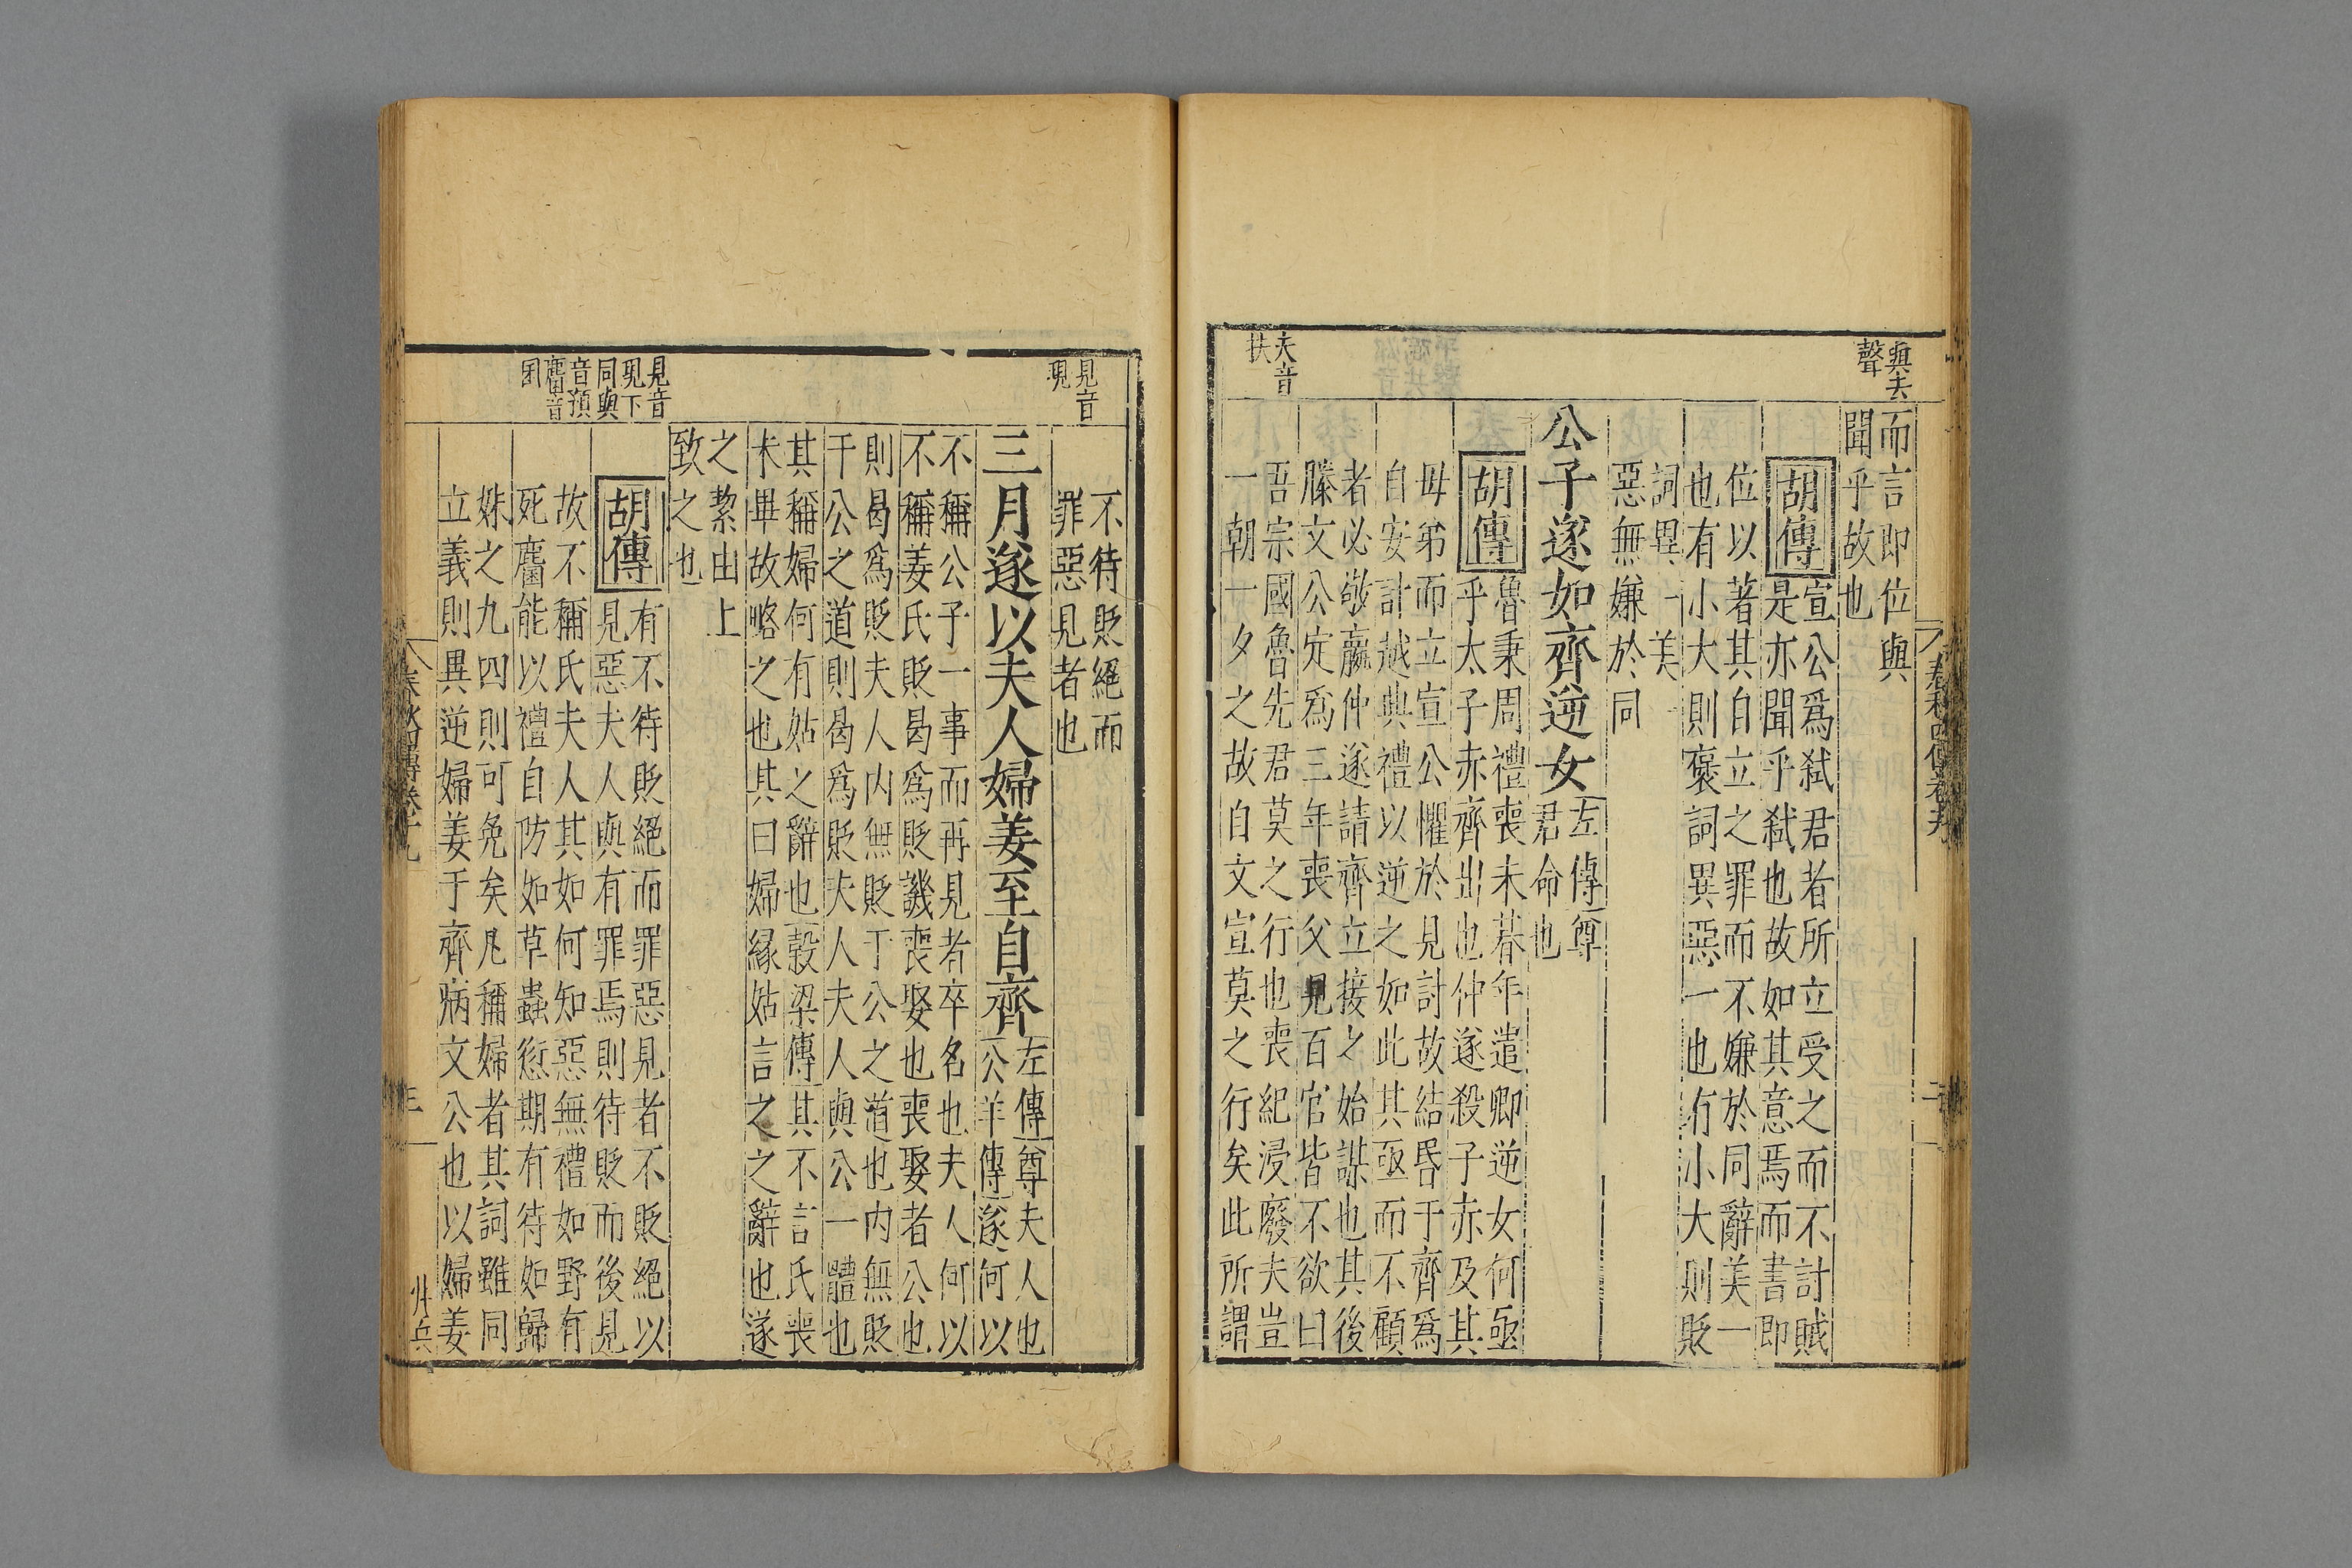 與去
聲
而言即位與
聞乎故也
胡傳
宣公爲弒君者所立受之而不計賊
是亦聞乎弒也故如其意焉而書即
位以著其自立之罪而不嫌於同辭美一
也有小大則褒詞異惡一也有小大則貶
詞異一美一
惡無嫌於同
公子遂如齊逆女
左傳尊
君命也
胡傳
魯秉周禮喪未朞年遣卿逆女何亟
乎太子赤齊出也仲遂殺子赤及其
母弟而立宣公懼於見討故結昏于齊爲
自安計越典禮以逆之如此其亟而不顧
者必敬嬴仲遂請齊立接之始謀也其後
滕文公定爲三年喪父兄百官皆不欲曰
吾宗國魯先君莫之行也喪紀浸廢夫豈
一朝一夕之故自文宣莫之行矣此所謂
夫音
扶
春秋四傳卷十九
二
見音
現
不待貶絕而
罪惡見者也
三月遂以夫人婦姜至自齊
左傳尊夫人也
公羊傳遂何以
不稱公子一事而再見者卒名也夫人何以
不稱姜氏貶曷爲貶譏喪娶也喪娶者公也
則曷爲貶夫人内無貶于公之道也内無貶
于公之道則曷爲貶夫人夫人與公一體也
其稱婦何有姑之辭也穀梁傳其不言氏喪
未畢故略之也其曰婦緣姑言之之辭也遂
之絜由上
致之也
見音
現下
同與
音預
麕音
囷
胡傳
有不待貶絕而罪惡見者不貶絕以
見惡夫人與有罪焉則待貶而後見
故不稱氏夫人其如何知惡無禮如野有
死麕能以禮自防如草蟲愆期有待如歸
妹之九四則可免矣凡稱婦者其詞雖同
立義則異逆婦姜于齊病文公也以婦姜
春秋四傳卷十九
三